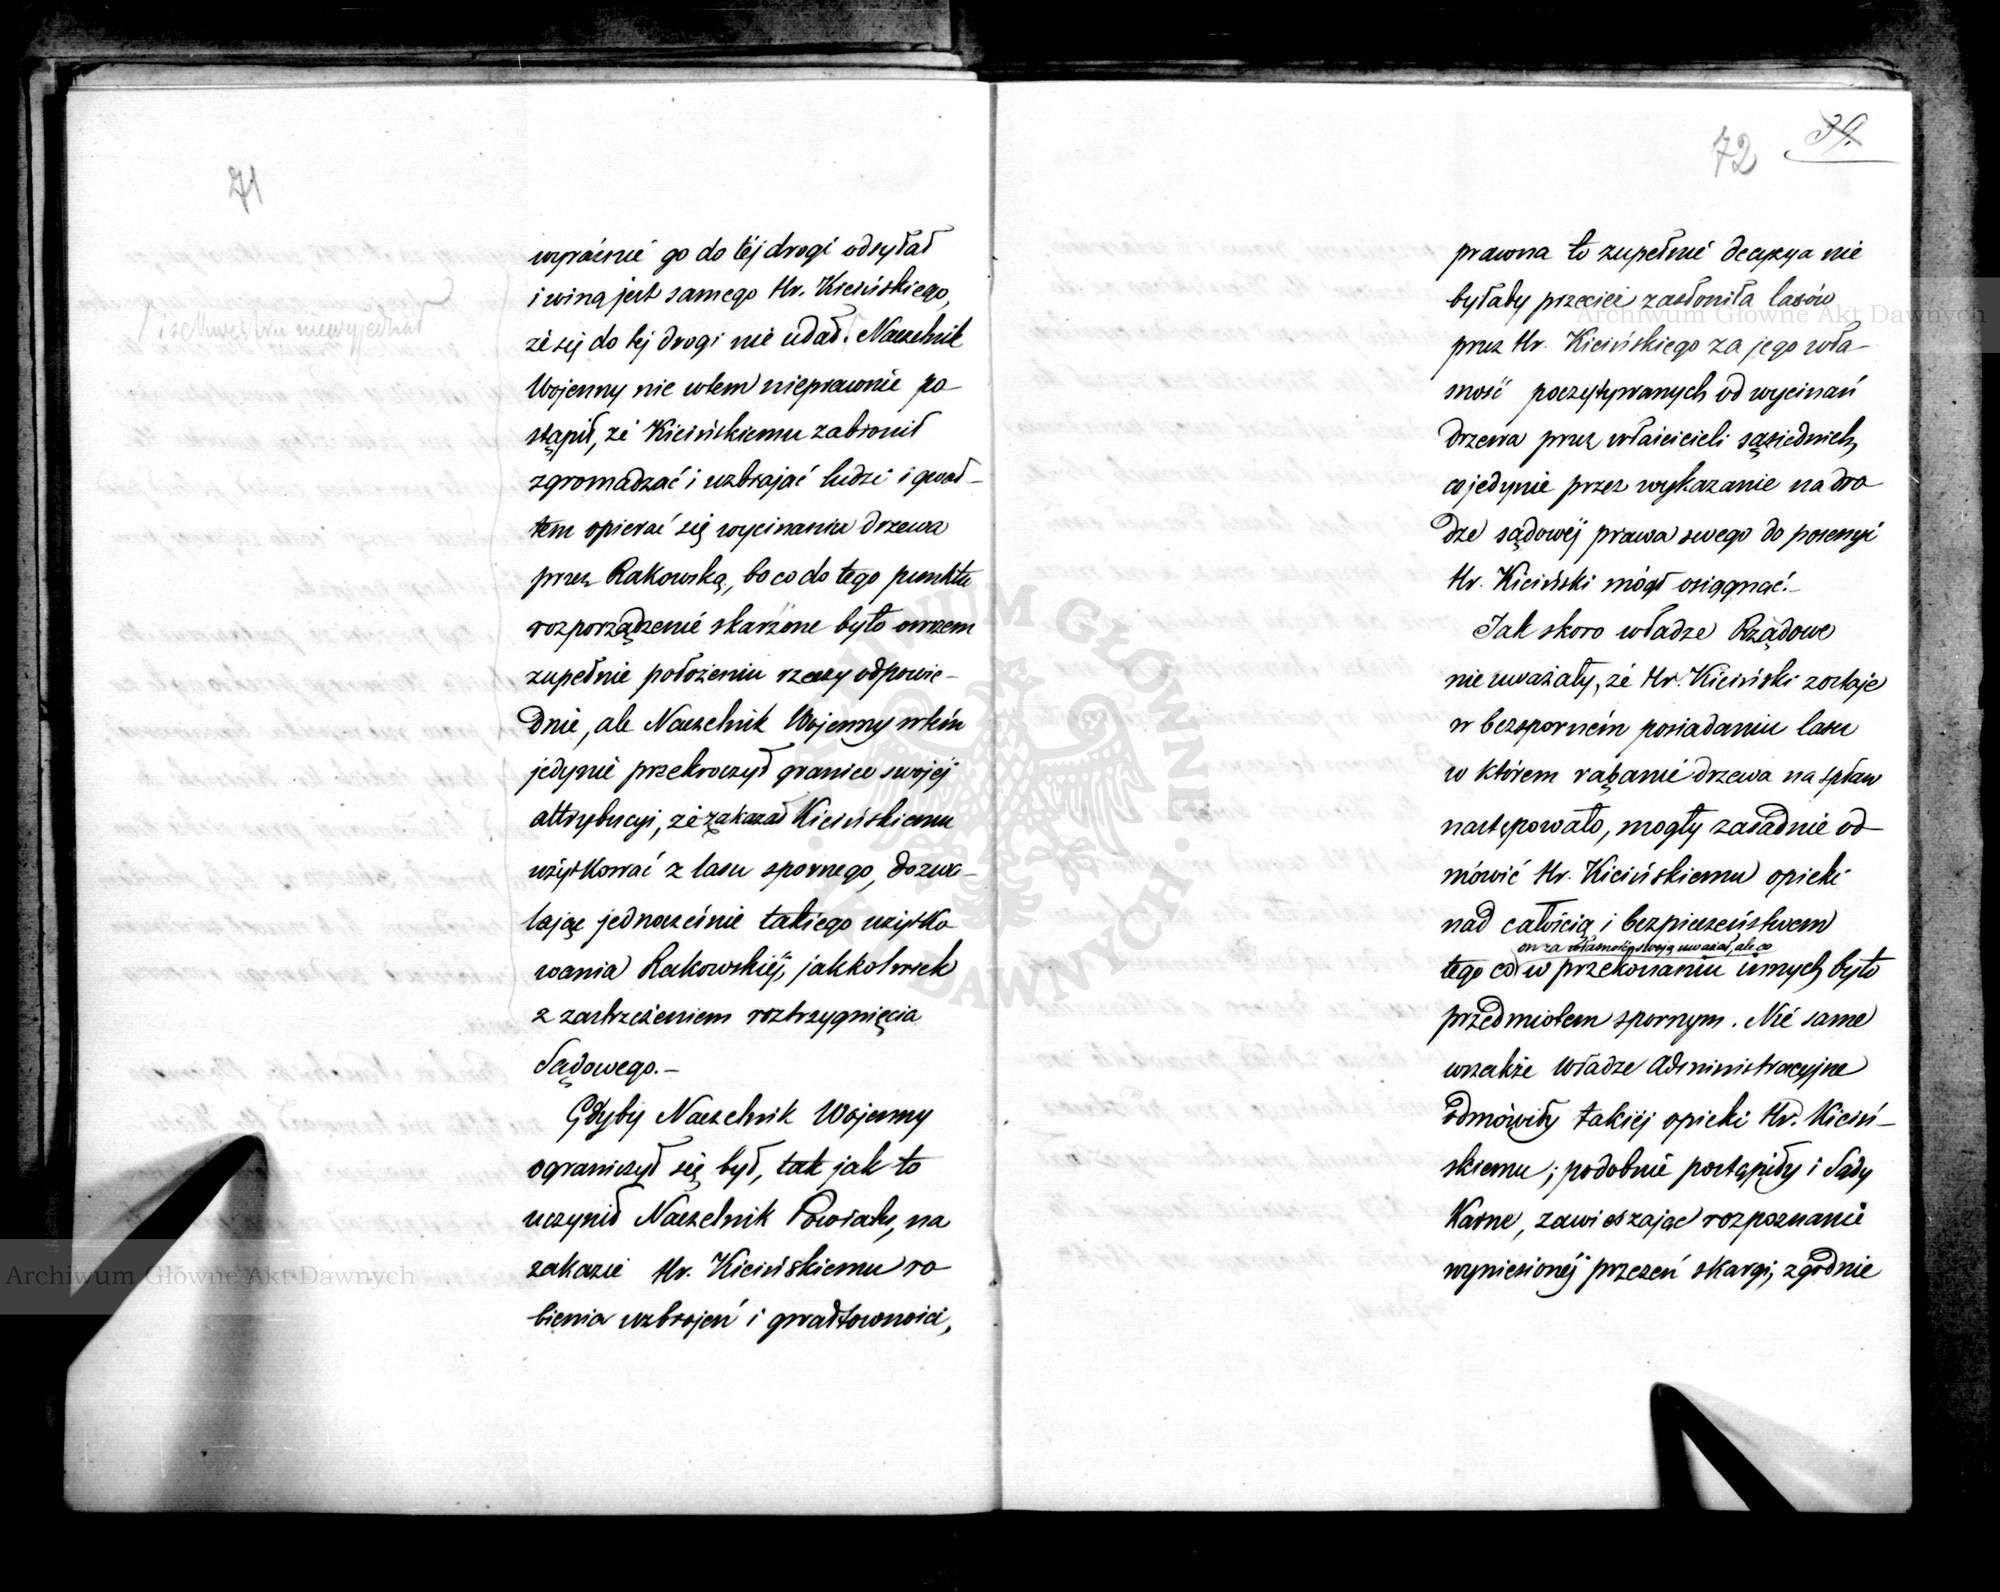 71
wyraźnie go do téj drogi odsyłał
i winą jest samego Hr. Kicińskiego,
że się do tej drogi nie udał. Naczelnik
Wojenny nie wtem nieprawnie po-
stąpił, że Kicińskiemu zabronił
zgromadzać i uzbrajać ludzi i gwał-
tem opierać się wycinaniu drzewa
przez Rakowską, bo co do tego punktu
rozporządzenie skarżone było owszem
zupełnie położeniu rzeczy odpowie-
dnie, ale Naczelnik Wojenny wtém
jedynie przekroczył granice swojéj
attrybucyi, że zakazał Kicińskiemu
użytkować z lasu spornego, dozwa-
lając jednocześnie takiego użytko
wania Rakowskiéj, jakkolwiek
z zastrzeżeniem roztrzygnięcia
Sądowego.-
Gdyby Naczelnik Wojenny
ograniczył się był, tak jak to
uczynił Naczelnik Powiatu, na
zakazie Hr. Kicińskiemu ro
bienia uzbrojeń i gwałtowności,
72 39.
prawna to zupełnie decyzya nie
byłaby przecież zasłoniła lasów
przez Hr. Kicińskiego za jego wła-
sność poczytywanych od wycinań
drzewa przez właścicieli sąsiednich,
co jedynie przez wykazanie na dro
dze sądowéj prawa swego do posesyi
Hr. Kiciński mógł osiągnąć.-
Jak skoro władze Rządowe
nie uważały, że Hr. Kiciński zostaje
w bezsporném posiadaniu lasu
w którem rąbanie drzewa na spław
następowało, mogły zasadnie od-
mówić Hr. Kicińskiemu opieki
nad całością i bezpieczeństwem
on za własność swoją uważał, ale co
tego co w przekonaniu innych było
przedmiotem spornym. Nie same
wszakże Władze Administracyjne
odmówiły takiéj opieki Hr. Kiciń-
skiemu; podobnie postąpiły i Sądy
Karne, zawieszając rozpoznanie
wyniesionéj przezeń skargi, zgodnie
Archiwum Główne Akt Dawnych
Archiwum Główne Akt Dawnych
ARCHIWUM GŁÓWNE AKT DAWNYCH